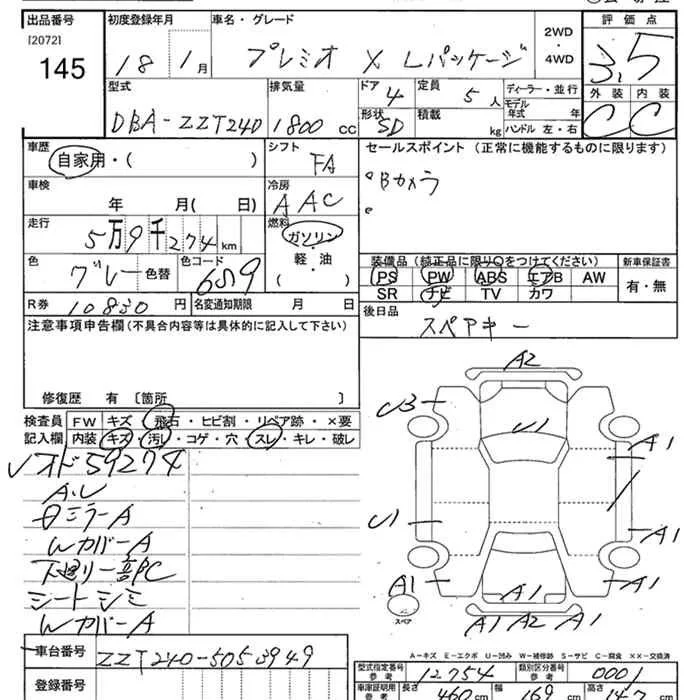 出品番号 初度登録年月 車名・グレード 評価点
[2072]
145
18年1月 プレミオ X Lパッケージ 2WD・4WD 3.5
外装 内装
C C
型式 排気量 ドア 4 定員 5人 ディーラー・並行
DBA-ZZT240 1800cc 形状 SD 積載 kg モデル年式 年
ハンドル 左・右
車歴 シフト セールスポイント (正常に機能するものに限ります)
自家用・( ) FA °Bカメラ
車検 冷房
年 月( 日) AAC
走行 燃料
5万9千274km ガソリン・軽・油( )
装備品 (純正品に限り○をつけてください) 新車保証書
色 色コード PS PW ABS エアB AW 有・無
グレー 色替 6S9 SR ナビ TV カワ
R券 10830円 名変通知期限 月 日 後日品
注意事項申告欄 (不具合内容等は具体的に記入して下さい) スペアキー
修復歴 有 〔箇所 〕
検査員 FW キズ・飛石・ヒビ割・リペア跡・×要
記入欄 内装 キズ・汚レ・コゲ・穴・スレ・キレ・破レ
レオド59274
Wカバー A
下廻り一部PC
シートシミ
Wカバー A
A2
U3
U1
A1
U1
A1
A1
A1
A1
A1 A2 A1
スペア
A-キズ E-エクボ U-凹み W-補修跡 S-サビ C-腐食 ××-交換済
車台番号 ZZT240-5053949
型式指定番号 参考 12754 類別区分番号 参考 0001
登録番号
車庫証明用 参考 長さ 460cm 幅 169cm 高さ 147cm